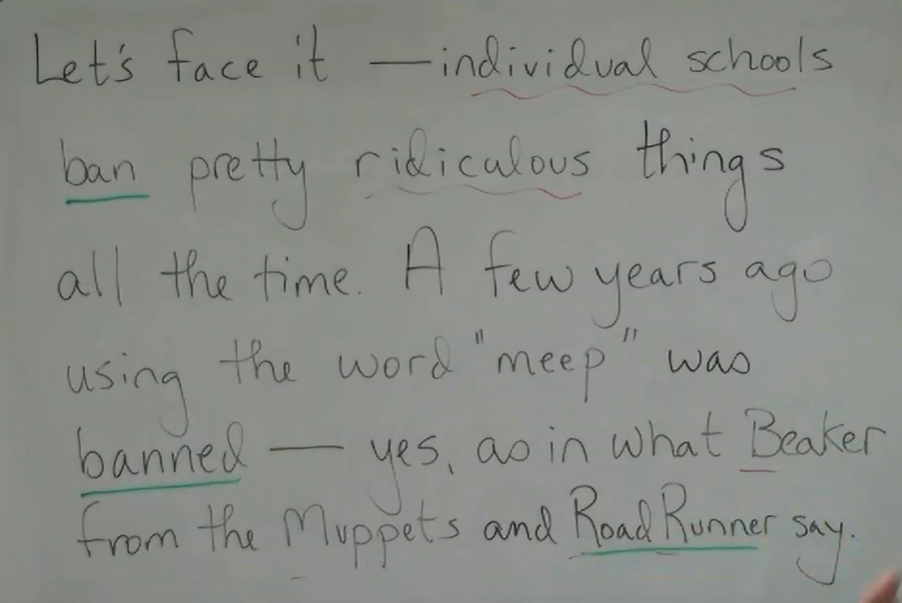 Let's face it — individual schools
ban pretty ridiculous things
all the time. A few years ago
using the word "meep" was
banned — yes, as in what Beaker
from the Muppets and Road Runner say.